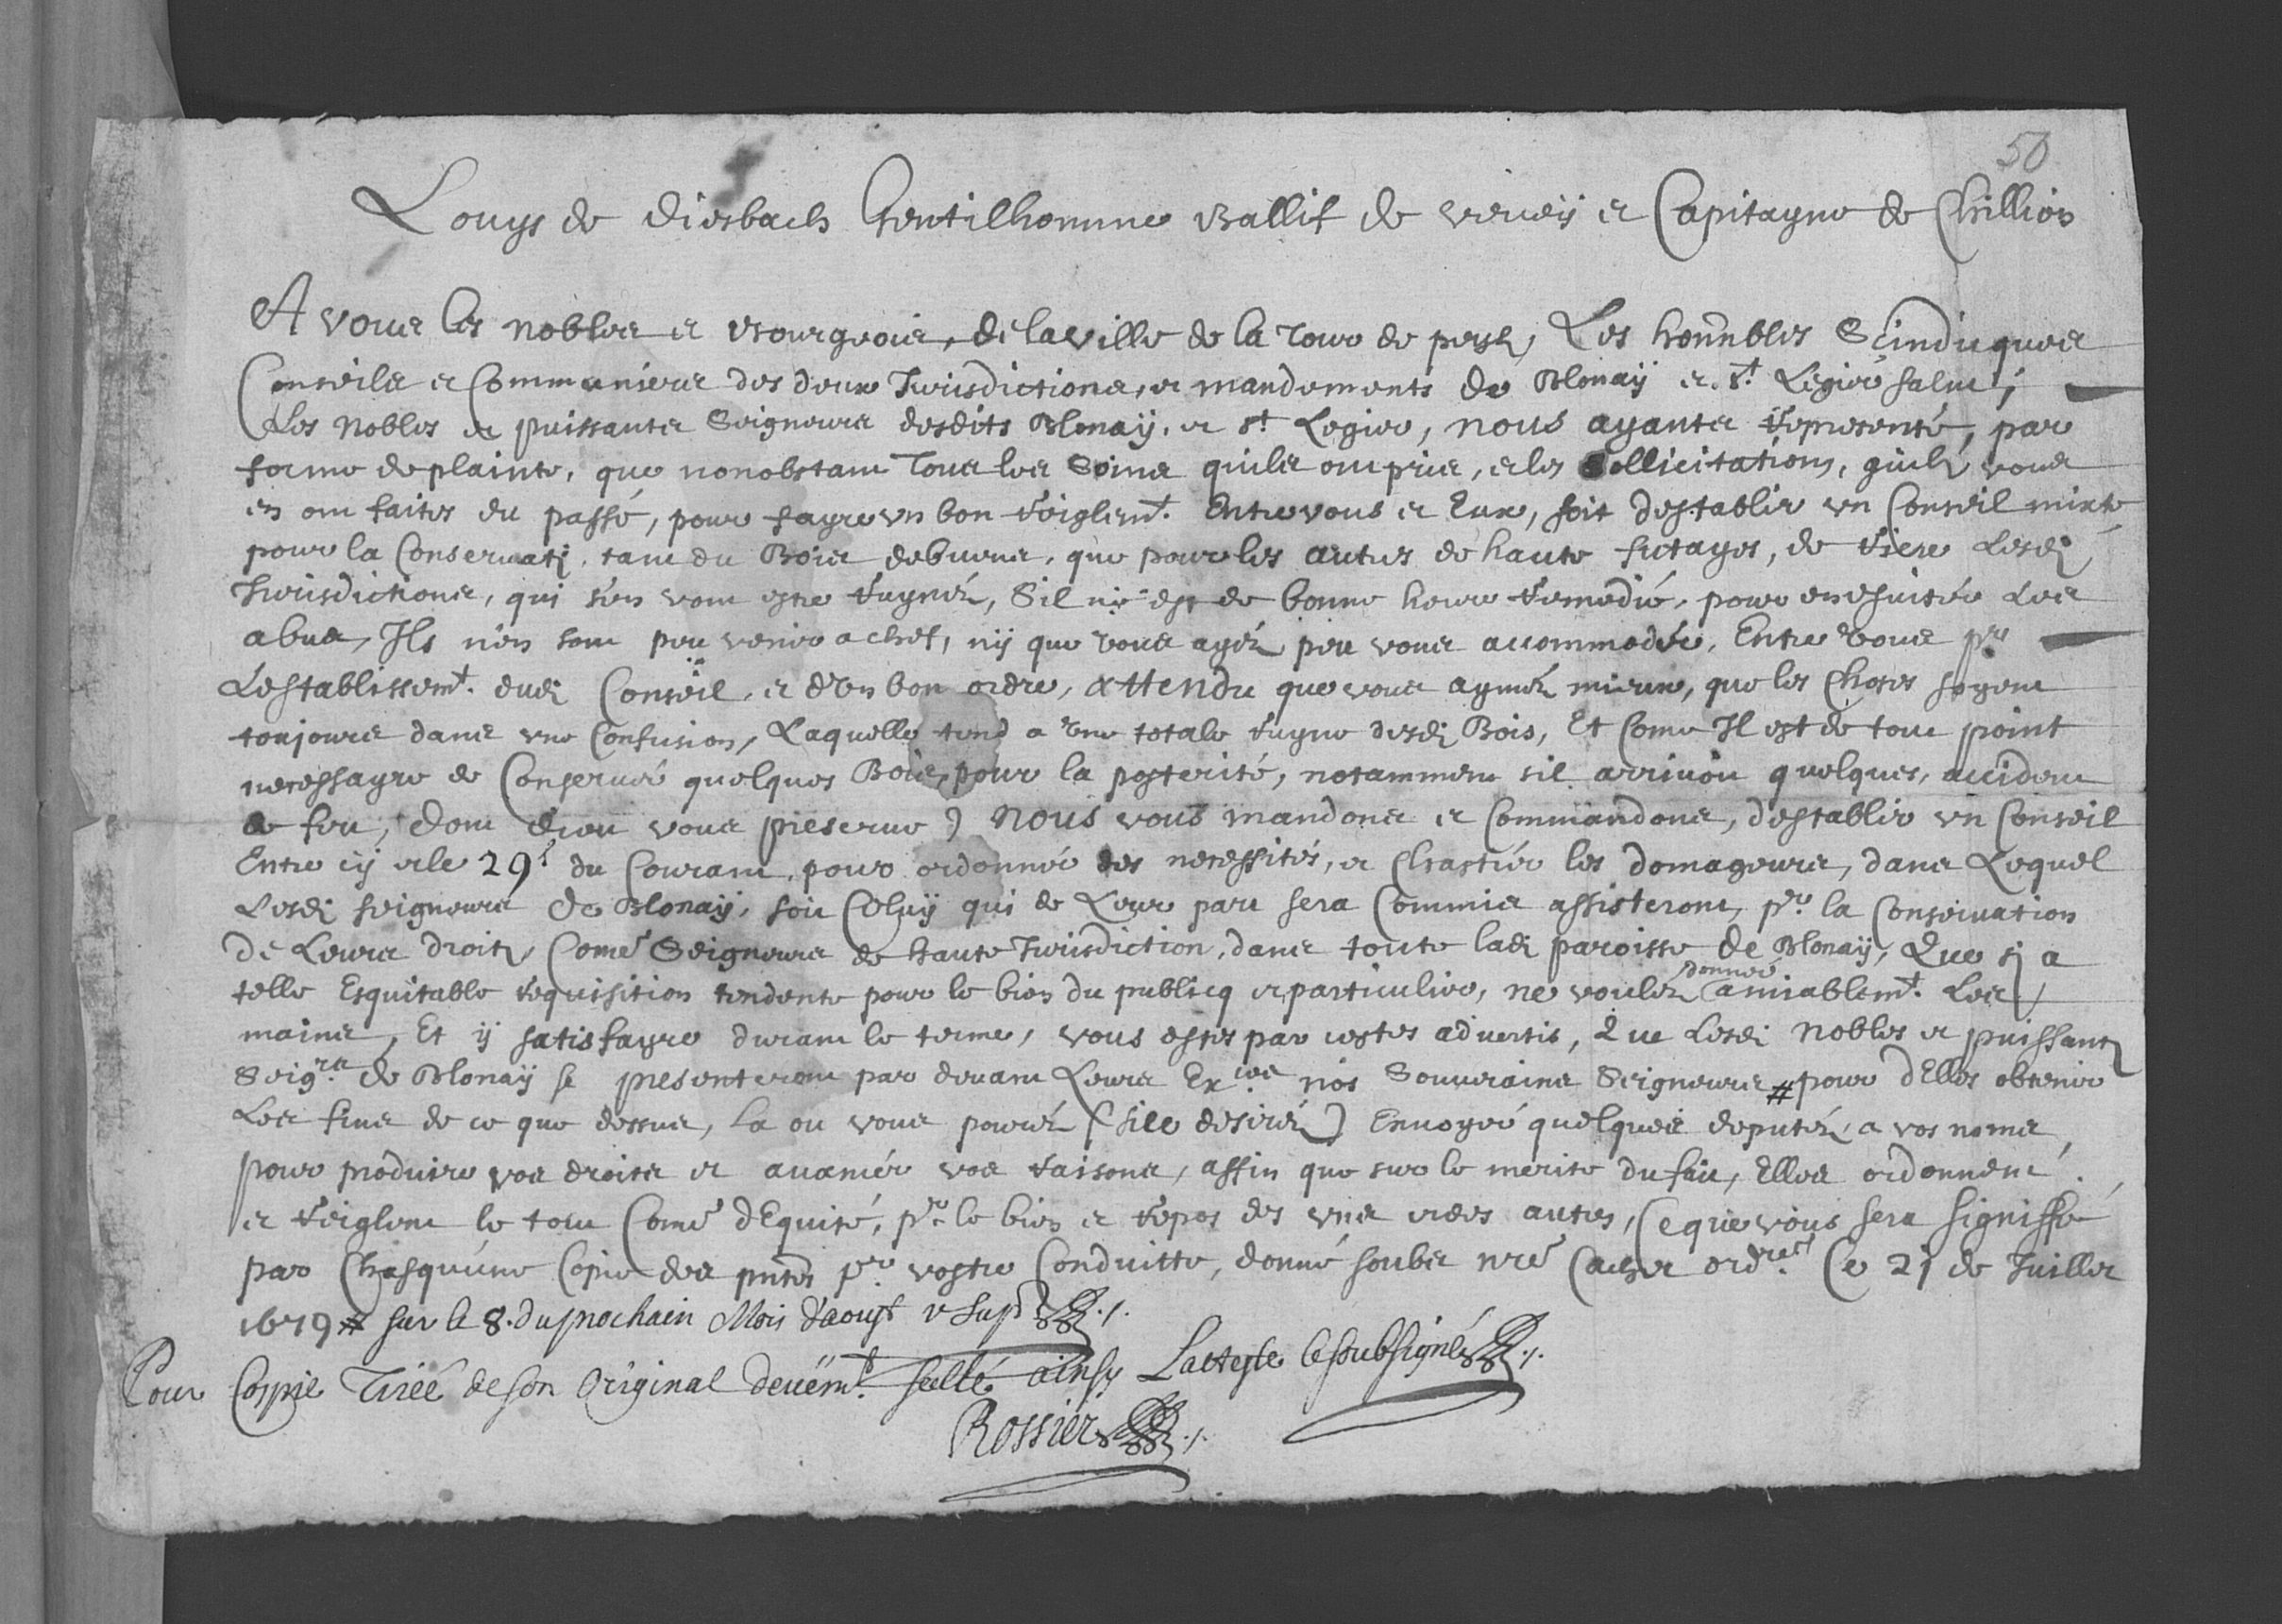 50
Louys de Diesbach Gentilhomme Ballif de Vevey et Capitayne de Chillion
A vous les nobles et Bourgeois, de la ville de la Tour de peyls, Les honnbles Scindicques
Conseils et Communiers des deux Jurisdictions, et mandements de Blonaÿ et St Legier salut,
Les Nobles et puissants Seigneurs desdits Blonaÿ, et St Legier, nous ayants representé, par
forme de plainte, que nonobstant tous les Soins quils ont pris, et les sollicitations, quils vous
en ont faites du passé, pour fayre un bon reiglemt. Entre vous et Eux, soit destablir un Conseil mixte
pour la Conservati, tant du Bois de , que pour les autres de haute futayes, de riere Lesdi
Jurisdictions, qui s'en vont estre ruynés, Sil n'y est de bonne heure remedié, pour Les
abus, Ils n'en sont peu venir a chef, nÿ que vous ayés peu vous accommodér, Entre vous pr
Lestablissemt. dudi Conseil, et d'un bon ordre, attendu que vous aymés mieux, que les Choses soyent
toujours dans une Confusion, Laquelle tend a une totale ruyne desdi Bois, Et Come Il est de tout point
necessayre de Conservér quelques Bois, pour la posterité, notamment sil arrivoit quelques, accident
de feu, (dont dieu vous preserve) nous vous mandons et Commandons, d'establir un Conseil
Entre cÿ et le 29e du Courant, pour ordonnér des necessités, et Chastiér les domageurs, dans Lequel
Lesdi seigneurs de Blonaÿ, soit Celuÿ qui de Leur part sera Commis assisteront, pr. la Conservation
de Leurs droits, Come Seigneurs de haute Jurisdiction, dans toute ladi paroisse de Blonaÿ, Que si a
telle Esquitable requisition tendente pour le bien du publicq et particulier, ne voulez donner amiablemt. Les
mains, Et ÿ satisfayre durant le terme, vous estes par cestes advertis, Que Lesdi Nobles et puissants
Seigrs de Blonaÿ se presenteront par devant Leurs Exces nos Souverains Seigneurs # pour dElles obtenir
Les fins de ce que dessus, la ou vous pourrés (sile desirés) Envoyér quelques deputés a vos noms,
pour produire vos droits et avancér vos raisons, affin que sur le merite du fait, Elles ordonnent
et reiglent le tout Come d'Equité, pr. le bien et repos des uns et des autres, Ce que vous sera signiffié
par Chasqu'une Copie des pntes pr. vostre Conduitte, donné soubs nre Cachet ordre. Ce 21 de Juillet
1679 # sur le 8. du prochain Mois d'aoust v Supr
Pour Coppie Tirée de son Original deuemt. sellé ainsy Latteste le soubsigné
Rossier